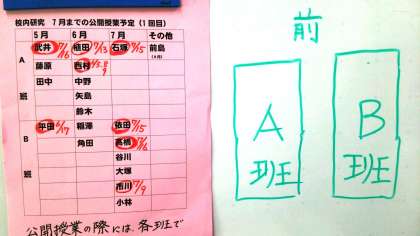 校内研究 7月までの公開授業予定(1回目)
5月 6月 7月 その他
武井 植田 7/13 石塚 7/5 前島
藤原 西村
田中 中野
矢島
鈴木
A班
平田 稲澤 依田 7/5
角田 高橋
谷川
大塚
市川 7/9
小林
B班
公開授業の際には、各班で
前
A班
B班